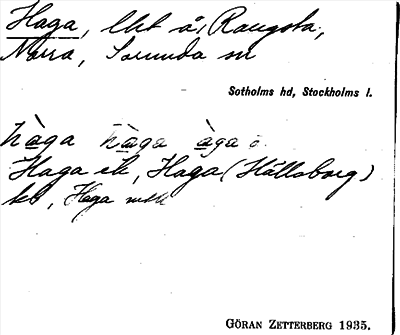 Haga, lht å, Rangsta,
Norra, Sorunda sn
Sotholms hd, Stockholms l.
hàga hàga àga
Haga ek, Haga (Hållsborg)
kb, Haga
GÖRAN ZETTERBERG 1935.